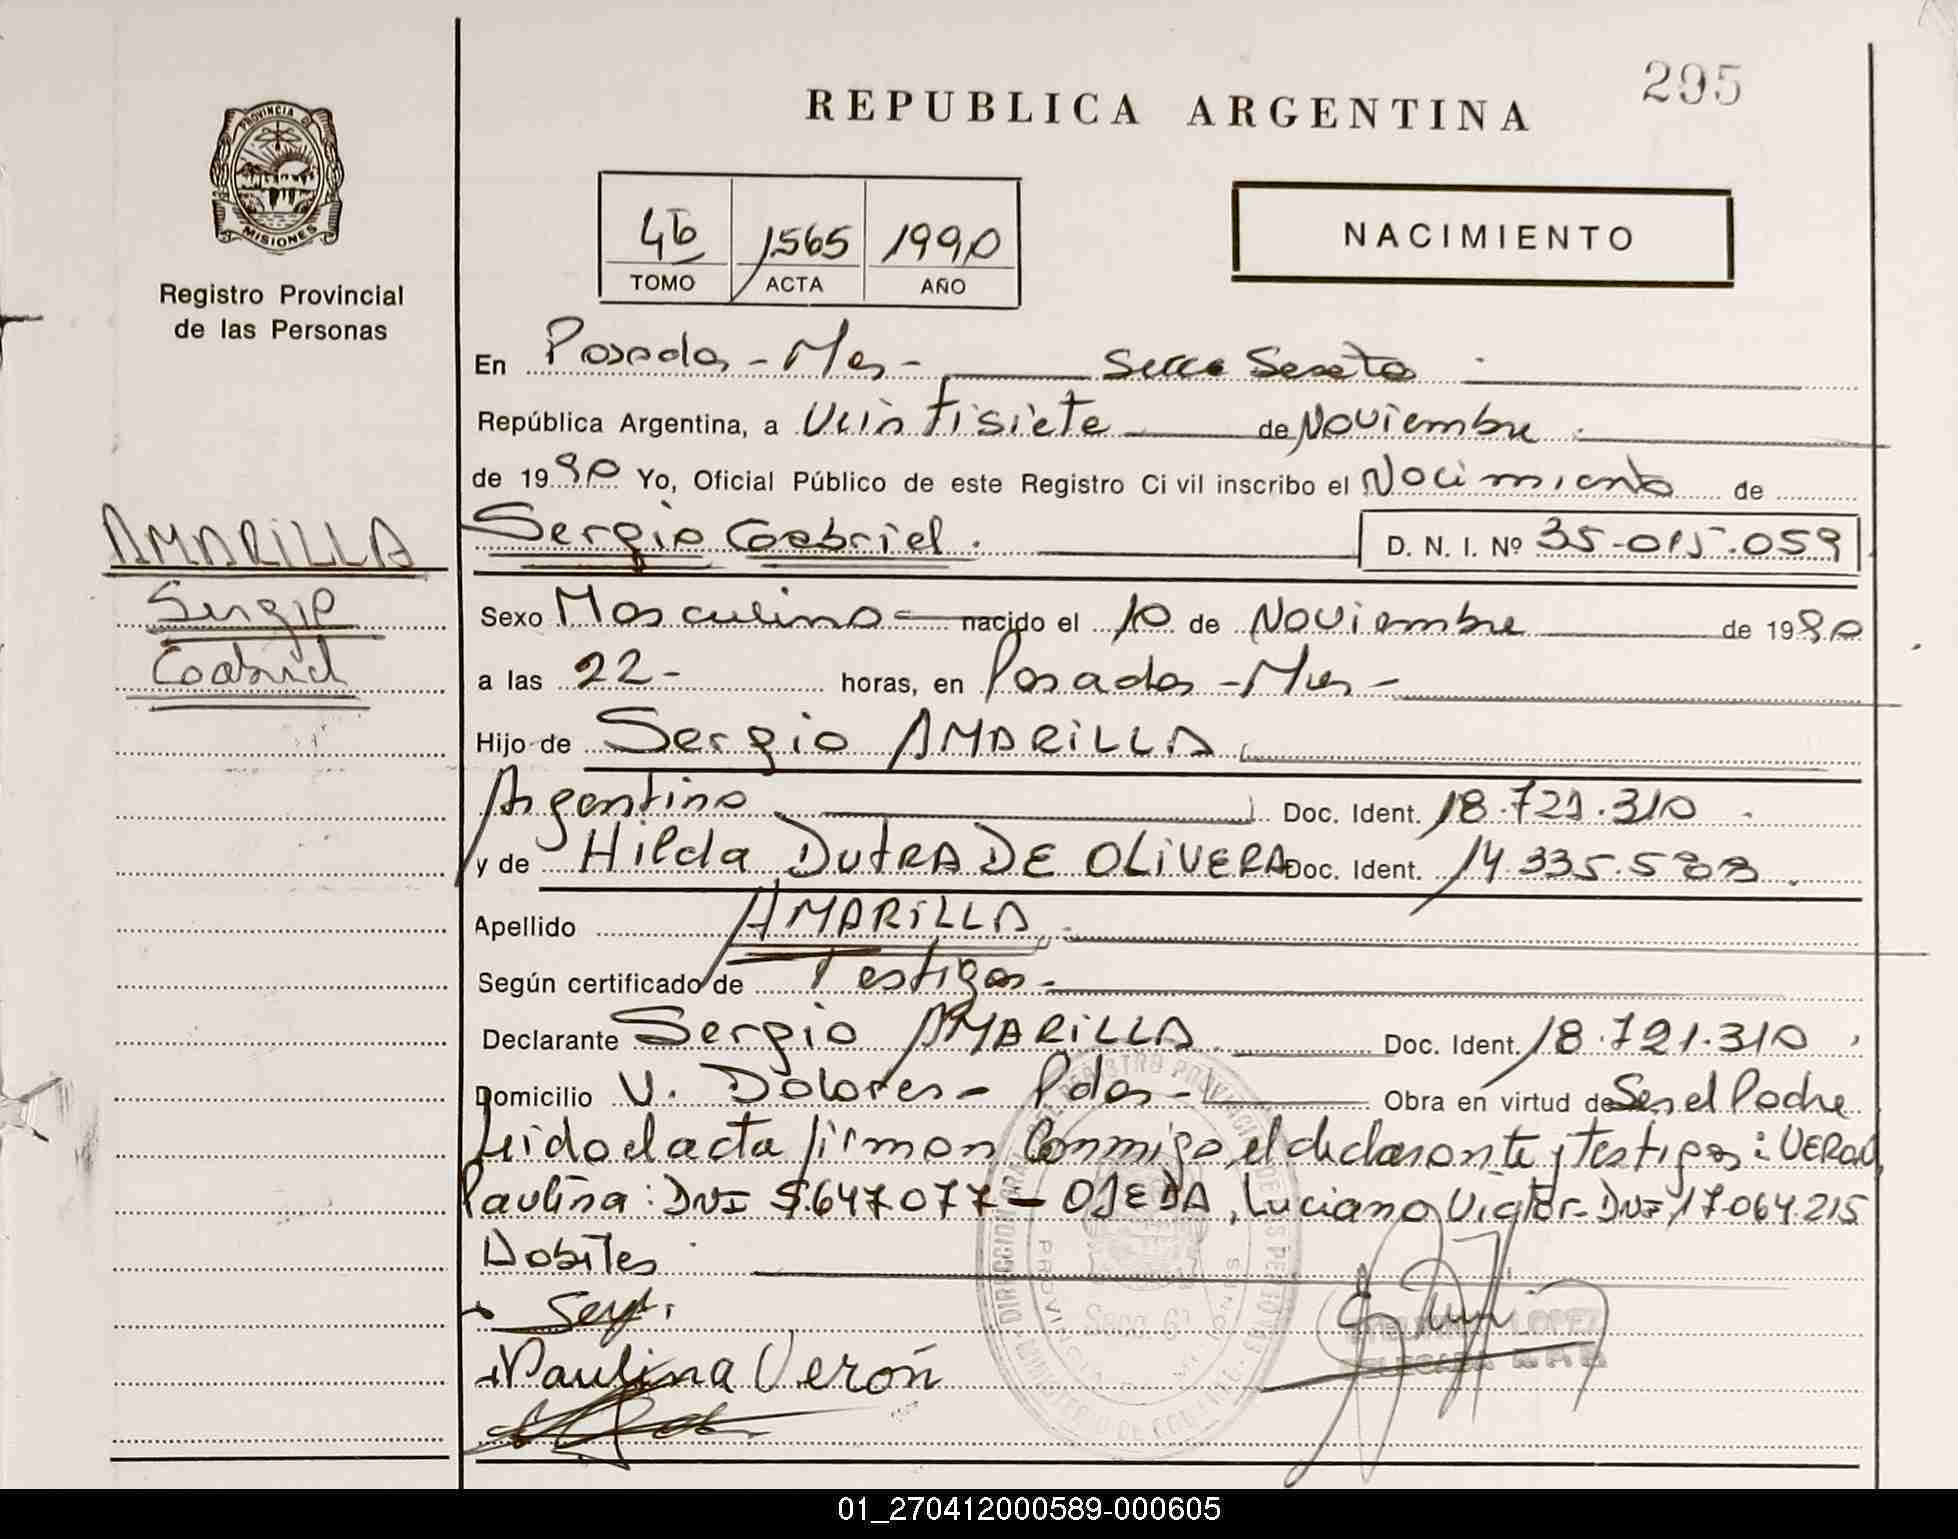 295
REPUBLICA ARGENTINA
PROVINCIA DE
MISIONES
Registro Provincial
de las Personas
4b 1565 1990
TOMO ACTA AÑO
NACIMIENTO
En Posadas - Mnes - Secc Sexta
República Argentina, a Veintisiete de Noviembre
de 1990 Yo, Oficial Público de este Registro Civil inscribo el Nacimiento de
AMARILLA
Sergio Gabriel. D. N. I. Nº 35-015.059
Sergio
Gabriel
Sexo Masculino nacido el 10 de Noviembre de 1990
a las 22- horas, en Posadas - Mnes -
Hijo de Sergio AMARILLA
Argentino Doc. Ident. 18.721.310
y de Hilda DUTRA DE OLIVERA Doc. Ident. 14.335.588
Apellido AMARILLA
Según certificado de Testigos -
Declarante Sergio AMARILLA Doc. Ident. 18.721.310
Domicilio V. Dolores - Pdas - Obra en virtud de Ser el Padre
Leido el acta firman Conmigo, el declarante y testigos:
Paulina: DNI 5.647.077 - OJEDA, Luciano Victor - DNI 17.064.215
Dobiles
Paulina Verón
Secc. 6ª
LOPEZ
01_270412000589-000605